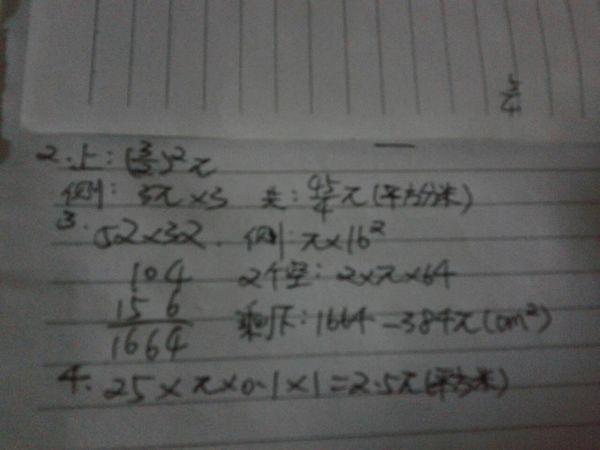 5/4
2. 上: (3/2)²π
侧: 3π×3 共: 45/4 π (平方分米)
3. 52×32. 侧: π×16²
104 2个空: 2×π×64
156 剩下: 1664-384π(cm²)
1664
4. 25×π×0.1×1=2.5π(平方米)